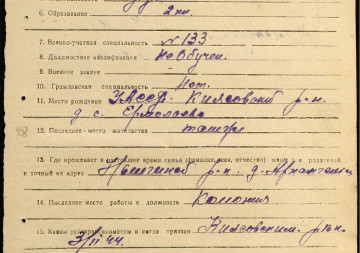 6. Образование 2 кл.
7. Военно-учетная специальность №133
8. Должностная квалификация необучен.
9. Военное звание -
10. Гражданская специальность Нет.
11. Место рождения УАССР. Киясовский р-н.
д с. Ермолаево
12. Последнее место жительства татр
13. Где проживает в настоящее время семья (фамилия, имя, отчество) жены или родителей
и точный их адрес р-н. д. Архангельск
14. Последнее место работы и должность Колония
15. Каким райвоенкоматом и когда призван Киясовским. рвк.
3/II 44.